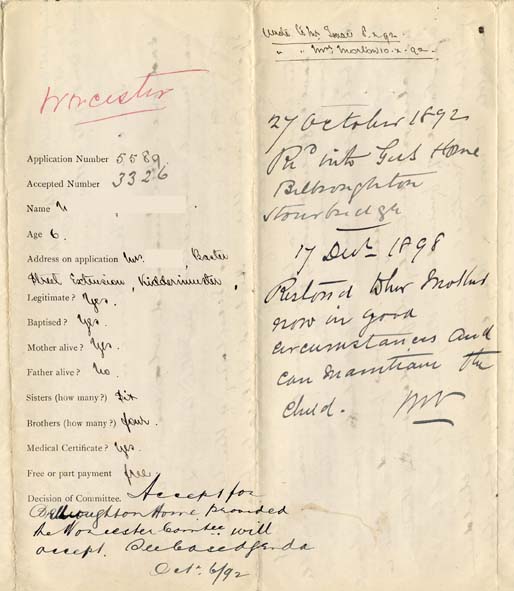 Worcester
Application Number 5589
Accepted Number 3326
Name
Age 6.
Address on application Mrs. Baxter
Street Extension, Kidderminster,
Legitimate? Yes.
Baptised? Yes
Mother alive? Yes.
Father alive? no
Sisters (how many?) Six
Brothers (how many?) four.
Medical Certificate? Yes.
Free or part payment free.
Decision of Committee. Accept for
Belbroughton Home provided
the Worcester Comtee will
accept. See Case Agenda
Oct. 6/92
8.x.92
" " Mrs 10.x.92.
27 October 1892
Rd into Girls Home
Belbroughton
Stourbridge
17 Decr 1898
Restored to her Mother
now in good
circumstances and
can maintain the
child.